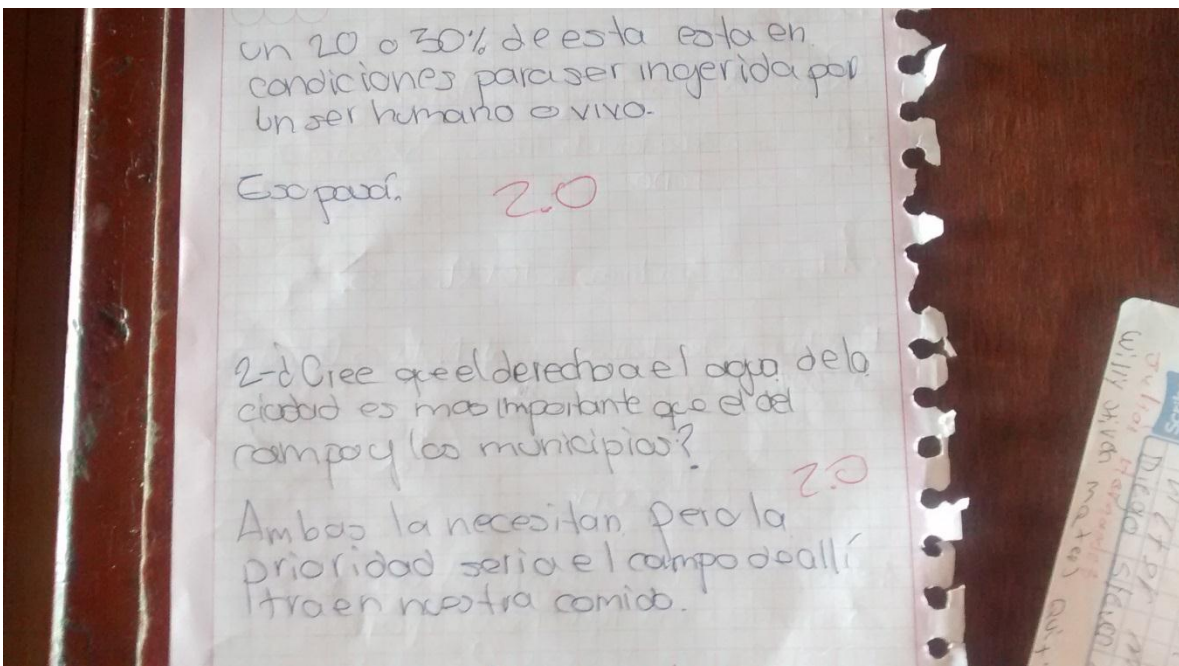 un 20 o 30% de esta esta en
condiciones para ser ingerida por
un ser humano o vivo.
2.0
2-¿Cree que el derecho a el agua de la
ciudad es mas importante que el del
campo y los municipios?
2.0
Ambas la necesitan pero la
prioridad seria el campo de allí
traen nuestra comida.
Willy
Diego